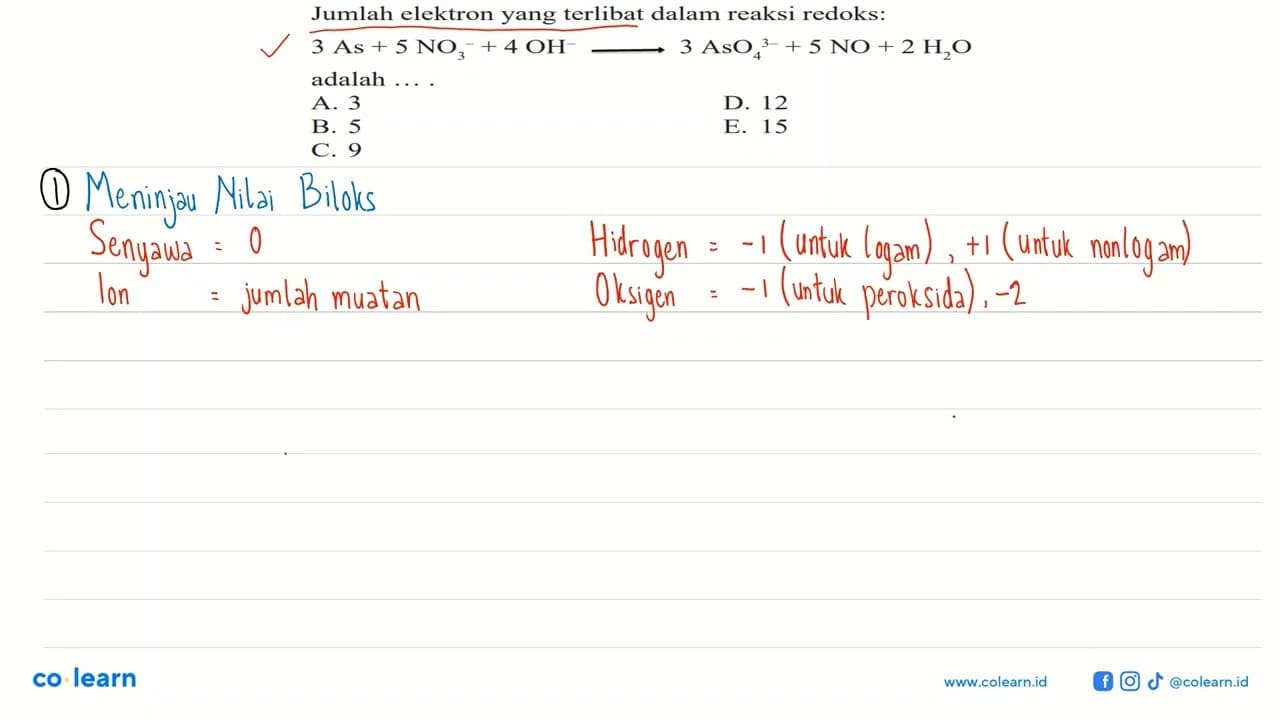 Jumlah elektron yang terlibat dalam reaksi redoks:
3 As + 5 NO₃⁻ + 4 OH⁻ ⟶ 3 AsO₄³⁻ + 5 NO + 2 H₂O
adalah ... .
A. 3
B. 5
C. 9
D. 12
E. 15
① Meninjau Nilai Biloks
Senyawa = 0
Ion = jumlah muatan
Hidrogen = -1 (untuk logam), +1 (untuk nonlogam)
Oksigen = -1 (untuk peroksida), -2
co learn
www.colearn.id
@colearn.id